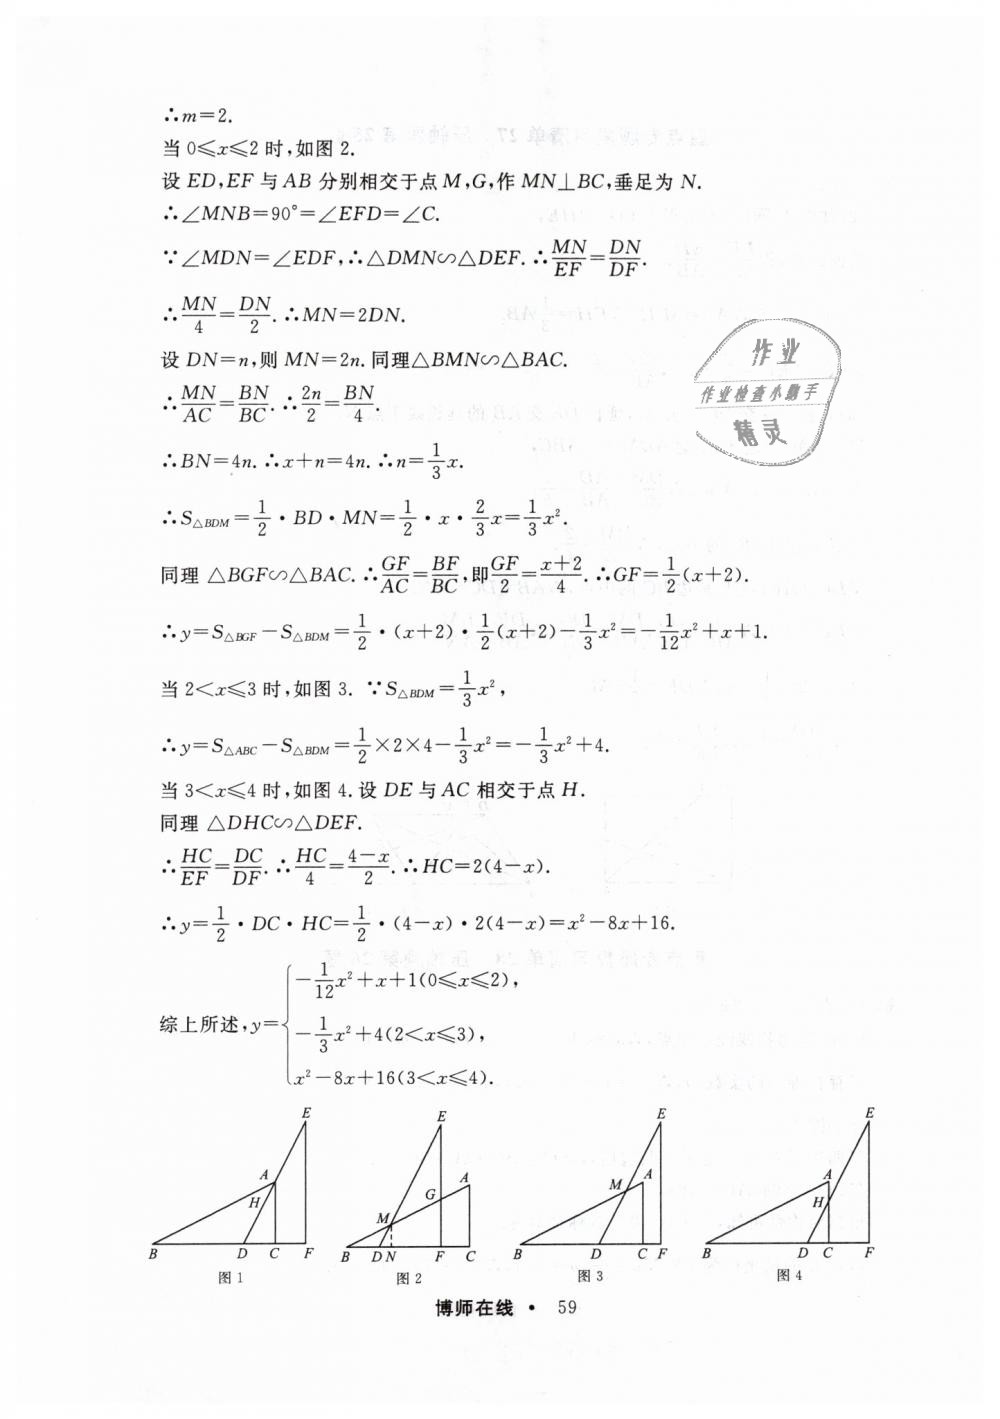 ∴m=2.
当 0≤x≤2 时,如图 2.
设 ED,EF 与 AB 分别相交于点 M,G,作 MN⊥BC,垂足为 N.
∴∠MNB=90°=∠EFD=∠C.
∵∠MDN=∠EDF,∴△DMN∽△DEF.∴MN/EF=DN/DF.
∴MN/4=DN/2.∴MN=2DN.
设 DN=n,则 MN=2n.同理△BMN∽△BAC.
∴MN/AC=BN/BC.∴2n/2=BN/4.
∴BN=4n.∴x+n=4n.∴n=1/3x.
∴S△BDM=1/2·BD·MN=1/2·x·2/3x=1/3x².
同理 △BGF∽△BAC.∴GF/AC=BF/BC,即GF/2=x+2/4.∴GF=1/2(x+2).
∴y=S△BGF-S△BDM=1/2·(x+2)·1/2(x+2)-1/3x²=-1/12x²+x+1.
当 2<x≤3 时,如图 3.∵S△BDM=1/3x²,
∴y=S△ABC-S△BDM=1/2×2×4-1/3x²=-1/3x²+4.
当 3<x≤4 时,如图 4.设 DE 与 AC 相交于点 H.
同理 △DHC∽△DEF.
∴HC/EF=DC/DF.∴HC/4=4-x/2.∴HC=2(4-x).
∴y=1/2·DC·HC=1/2·(4-x)·2(4-x)=x²-8x+16.
综上所述,y={
-1/12x²+x+1(0≤x≤2),
-1/3x²+4(2<x≤3),
x²-8x+16(3<x≤4).
E A H B D C F
图 1
E A G M B D N F C
图 2
E M A B D C F
图 3
E A H B D C F
图 4
博师在线 · 59
作业
作业检查小助手
精灵